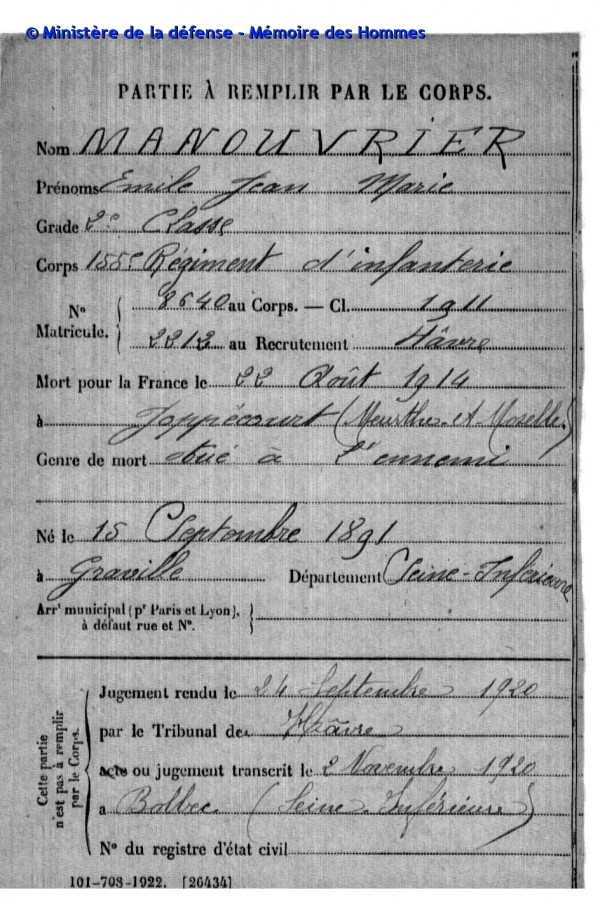 © Ministère de la défense - Mémoire des Hommes
PARTIE À REMPLIR PAR LE CORPS.
Nom MANOUVRIER
Prénoms Emile Jean Marie
Grade 2e Classe
Corps 155e Régiment d'infanterie
No Matricule. { 8640 au Corps. — Cl. 1911
2212 au Recrutement Hâvre
Mort pour la France le 22 Août 1914
à Joppécourt (Meurthe-et-Moselle)
Genre de mort tué à l'ennemi
Né le 15 Septembre 1891
à Graville Département Seine-Inférieure
Arrt municipal (pr Paris et Lyon),
à défaut rue et No.
Cette partie n'est pas à remplir par le Corps.
Jugement rendu le 24 Septembre 1920
par le Tribunal de Hâvre
acte ou jugement transcrit le 2 Novembre 1920
à Bolbec (Seine Inférieure)
No du registre d'état civil
101-708-1922. [26434]